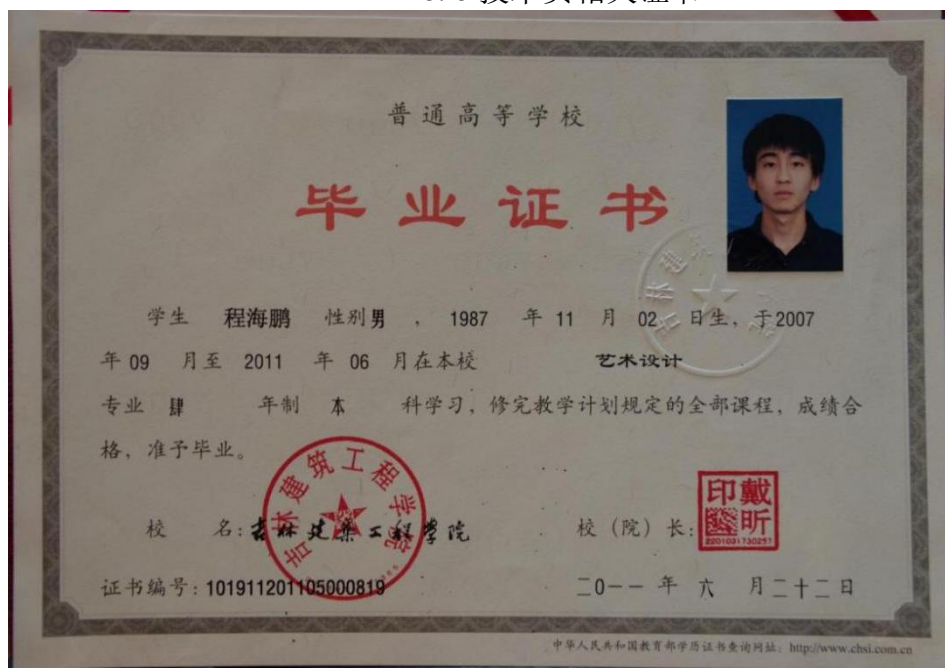 普通高等学校
毕业证书
学生 程海鹏 性别男 , 1987 年 11 月 02 日生, 于2007
年 09 月至 2011 年 06 月在本校 艺术设计
专业 肆 年制 本 科学习, 修完教学计划规定的全部课程, 成绩合
格, 准予毕业。
吉林建筑工程学院
校 名: 吉林建筑工程学院 校 (院) 长:
戴昕印
2201031730257
证书编号: 101911201105000819 二0一一 年 六 月二十二日
中华人民共和国教育部学历证书查询网址: http://www.chsi.com.cn